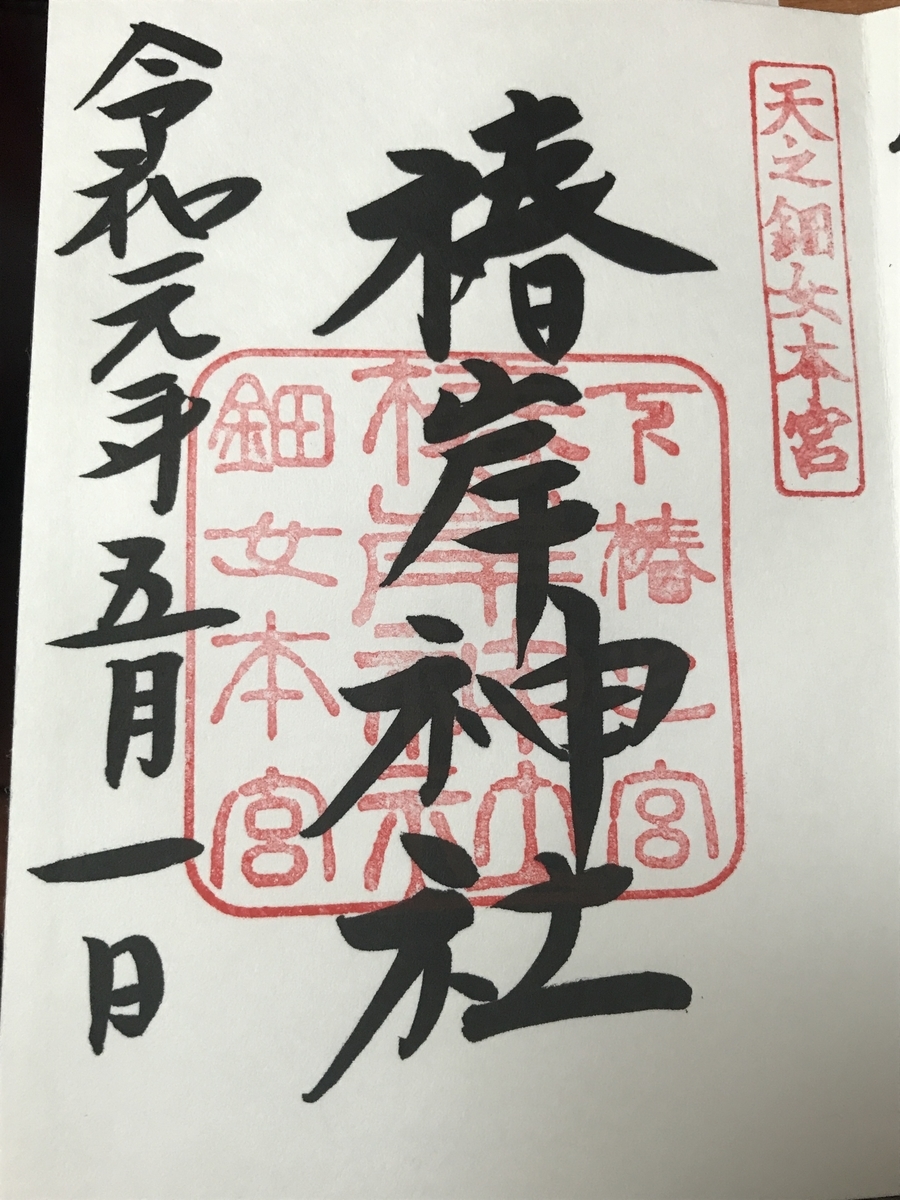 天之鈿女本宮
椿岸神社
下椿之宮
椿岸神社
鈿女本宮
令和元年五月一日